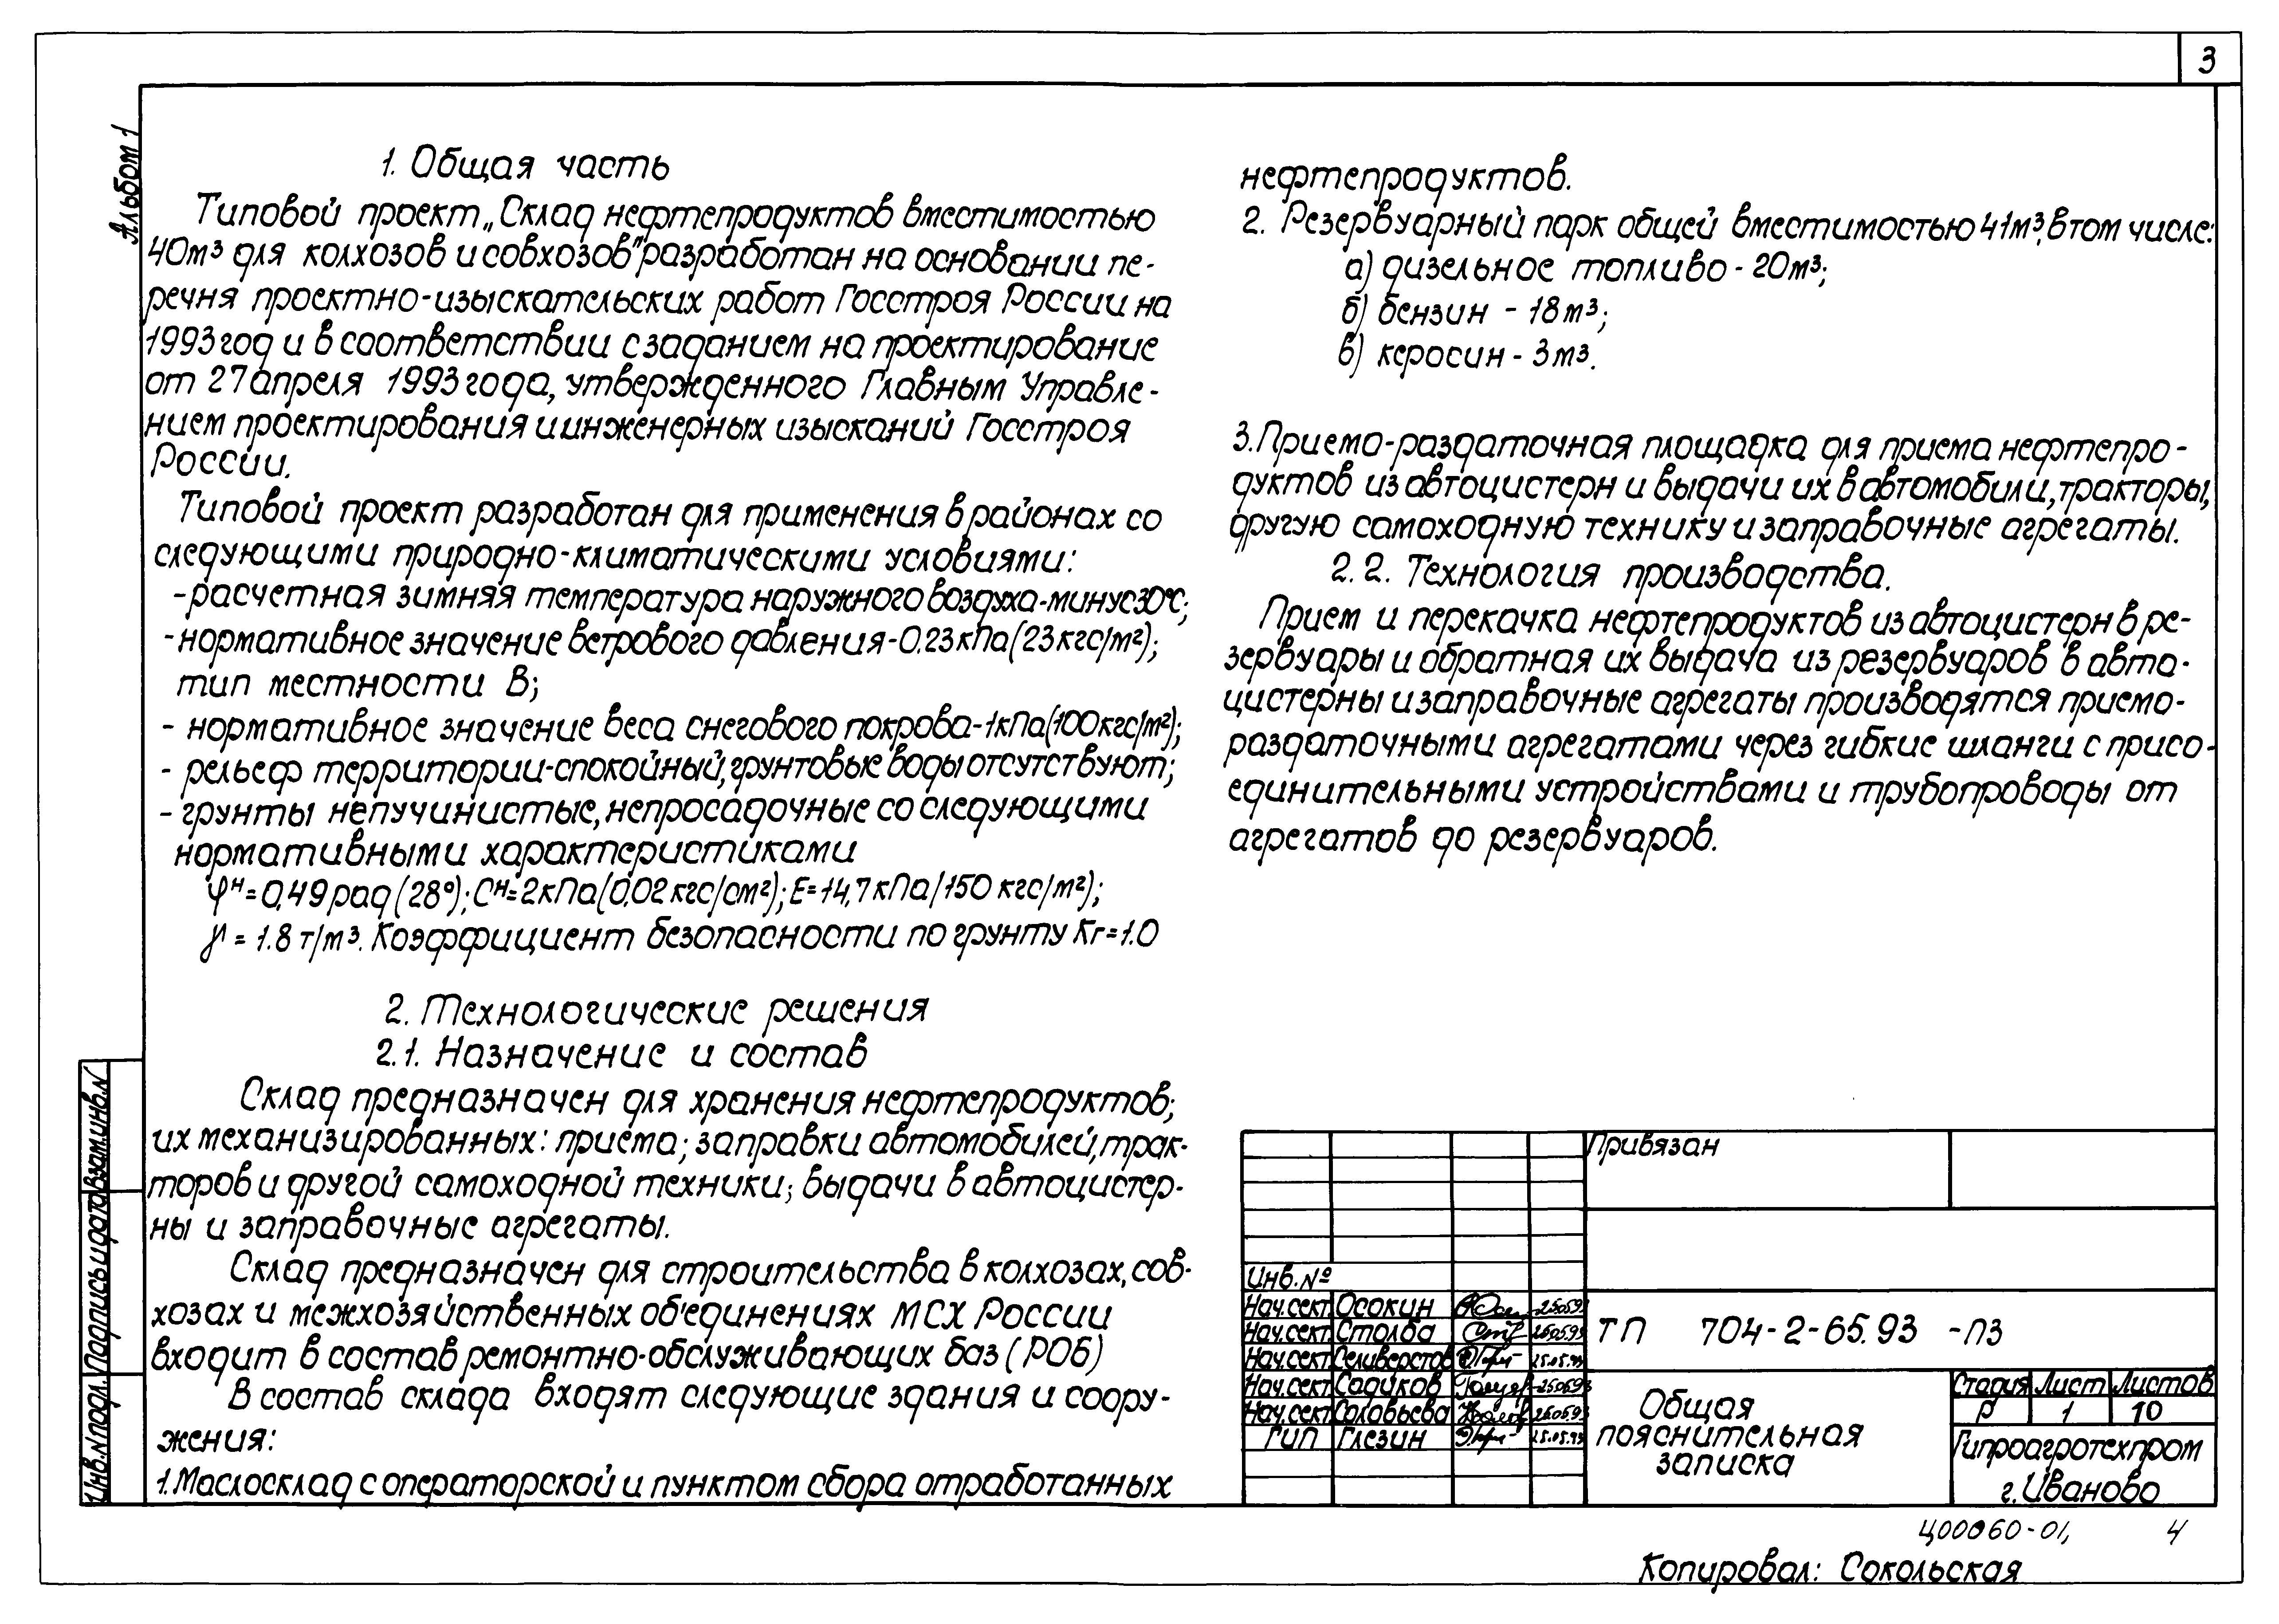 3
Альбом 1
1. Общая часть
Типовой проект „Склад нефтепродуктов вместимостью
40м³ для колхозов и совхозов" разработан на основании пе-
речня проектно-изыскательских работ Госстроя России на
1993 год и в соответствии с заданием на проектирование
от 27 апреля 1993 года, утвержденного Главным Управле-
нием проектирования и инженерных изысканий Госстроя
России.
Типовой проект разработан для применения в районах со
следующими природно-климатическими условиями:
-расчетная зимняя температура наружного воздуха-минус 30°С;
-нормативное значение ветрового давления-0.23кПа(23кгс/м²);
тип местности В;
- нормативное значение веса снегового покрова-1кПа(100кгс/м²);
- рельеф территории-спокойный, грунтовые воды отсутствуют;
- грунты непучинистые, непросадочные со следующими
нормативными характеристиками
φᴴ=0,49рад(28°); Cᴴ=2кПа(0,02кгс/см²); E=14,7кПа(150 кгс/м²);
γ = 1.8 т/м³. Коэффициент безопасности по грунту Кг=1.0
2. Технологические решения
2.1. Назначение и состав
Склад предназначен для хранения нефтепродуктов;
их механизированных: приема; заправки автомобилей, трак-
торов и другой самоходной техники; выдачи в автоцистер-
ны и заправочные агрегаты.
Склад предназначен для строительства в колхозах, сов-
хозах и межхозяйственных об'единениях МСХ России
входит в состав ремонтно-обслуживающих баз (РОБ)
В состав склада входят следующие здания и соору-
жения:
1. Маслосклад с операторской и пунктом сбора отработанных
нефтепродуктов.
2. Резервуарный парк общей вместимостью 41м³, в том числе:
а) дизельное топливо - 20м³;
б) бензин - 18м³;
в) керосин - 3м³.
3. Приемо-раздаточная площадка для приема нефтепро-
дуктов из автоцистерн и выдачи их в автомобили, тракторы,
другую самоходную технику и заправочные агрегаты.
2.2. Технология производства.
Прием и перекачка нефтепродуктов из автоцистерн в ре-
зервуары и обратная их выдача из резервуаров в авто-
цистерны и заправочные агрегаты производятся приемо-
раздаточными агрегатами через гибкие шланги с присо-
единительными устройствами и трубопроводы от
агрегатов до резервуаров.
Взам.инв.N
Подпись и дата
Инв.N подл.
Привязан
Инв.№
Нач.сект. Осокин 25.05.93
Нач.сект. Столба 25.05.93
Нач.сект. Селиверстов 25.05.93
Нач.сект. Садиков 25.05.93
Нач.сект. Соловьева 25.05.93
ГИП Глезин 25.05.93
ТП 704-2-65.93 -ПЗ
Общая
пояснительная
записка
Стадия Лист Листов
Р 1 10
Гипроагротехпром
г. Иваново
Ц00060-01, 4
Копировал: Сокольская